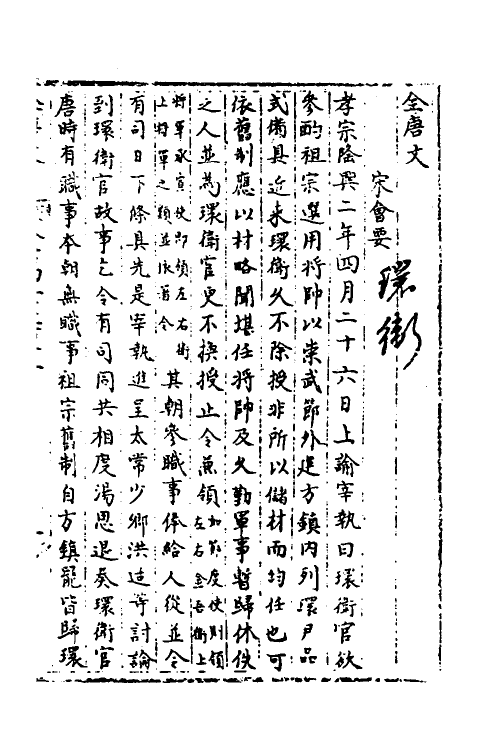 全唐文
宋會要
環衛
孝宗隆興二年四月二十六日上諭宰執曰環衛官欲
參酌祖宗選用將帥以崇武節外建方鎮内列環尹品
式備具近来環衛久不除授非所以儲材而均任也可
依舊制應以材略聞堪任將帥及久勤軍事暫歸休佚
之人並為環衛官更不換授止令兼領如節度使則領左右金吾衛上
將軍承宣使即領左右衛上將軍之類並依舊令其朝參職事俸給人從並令
有司日下條具先是宰執進呈太常少卿洪适等討論
到環衛官故事乞令有司同共相度湯思退奏環衛官
唐時有職事本朝無職事祖宗舊制自方鎮罷皆歸環